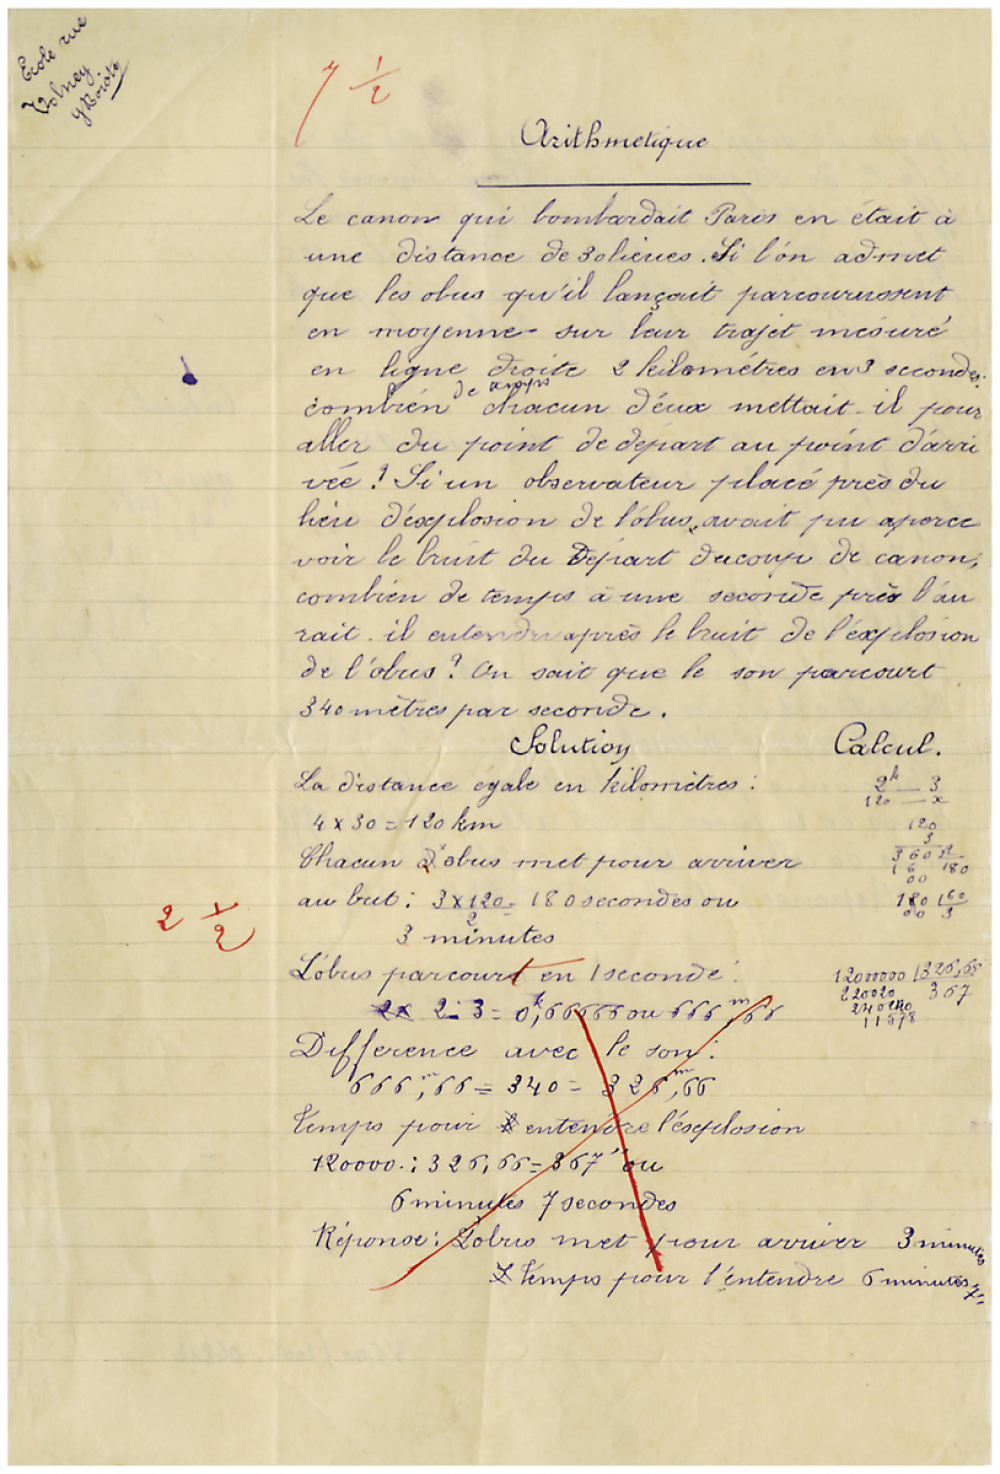 École rue
Volney
7 1/2
Arithmetique
Le canon qui bombardait Paris en était à
une distance de 30 lieues. Si l'on admet
que les obus qu'il lançait parcourussent
en moyenne sur leur trajet mesuré
en ligne droite 2 kilométres en 3 secondes.
de temps
combien chacun d'eux mettait-il pour
aller du point de départ au point d'arri
vée ? Si un observateur placé près du
lieu d'explosion de l'obus, avait pu aperce
voir le bruit du Départ du coup de canon,
combien de temps à une seconde près l'au
rait-il entendu après le bruit de l'éxplosion
de l'obus ? On sait que le son parcourt
340 mètres par seconde.
Solution Calcul.
La distance égale en kilomètres : 2k — 3
120 — x
4 x 30 = 120 km 120
3
Chacun d'obus met pour arriver 360 2
16 180
00
au but : 3 x 120 = 180 secondes ou 180 60
2 00 3
2 1/2
3 minutes
L'obus parcourt en 1 seconde : 1200000 326,66
220020 367
2 : 3 = 0k,66666 ou 666m,66 240240
11578
Difference avec le son :
666m,66 = 340 = 326m,66
Temps pour entendre l'éxplosion
120000 : 326,66 = 367'' ou
6 minutes 7 secondes
Réponse : L'obus met pour arriver 3 minutes
Temps pour l'entendre 6 minutes 7''